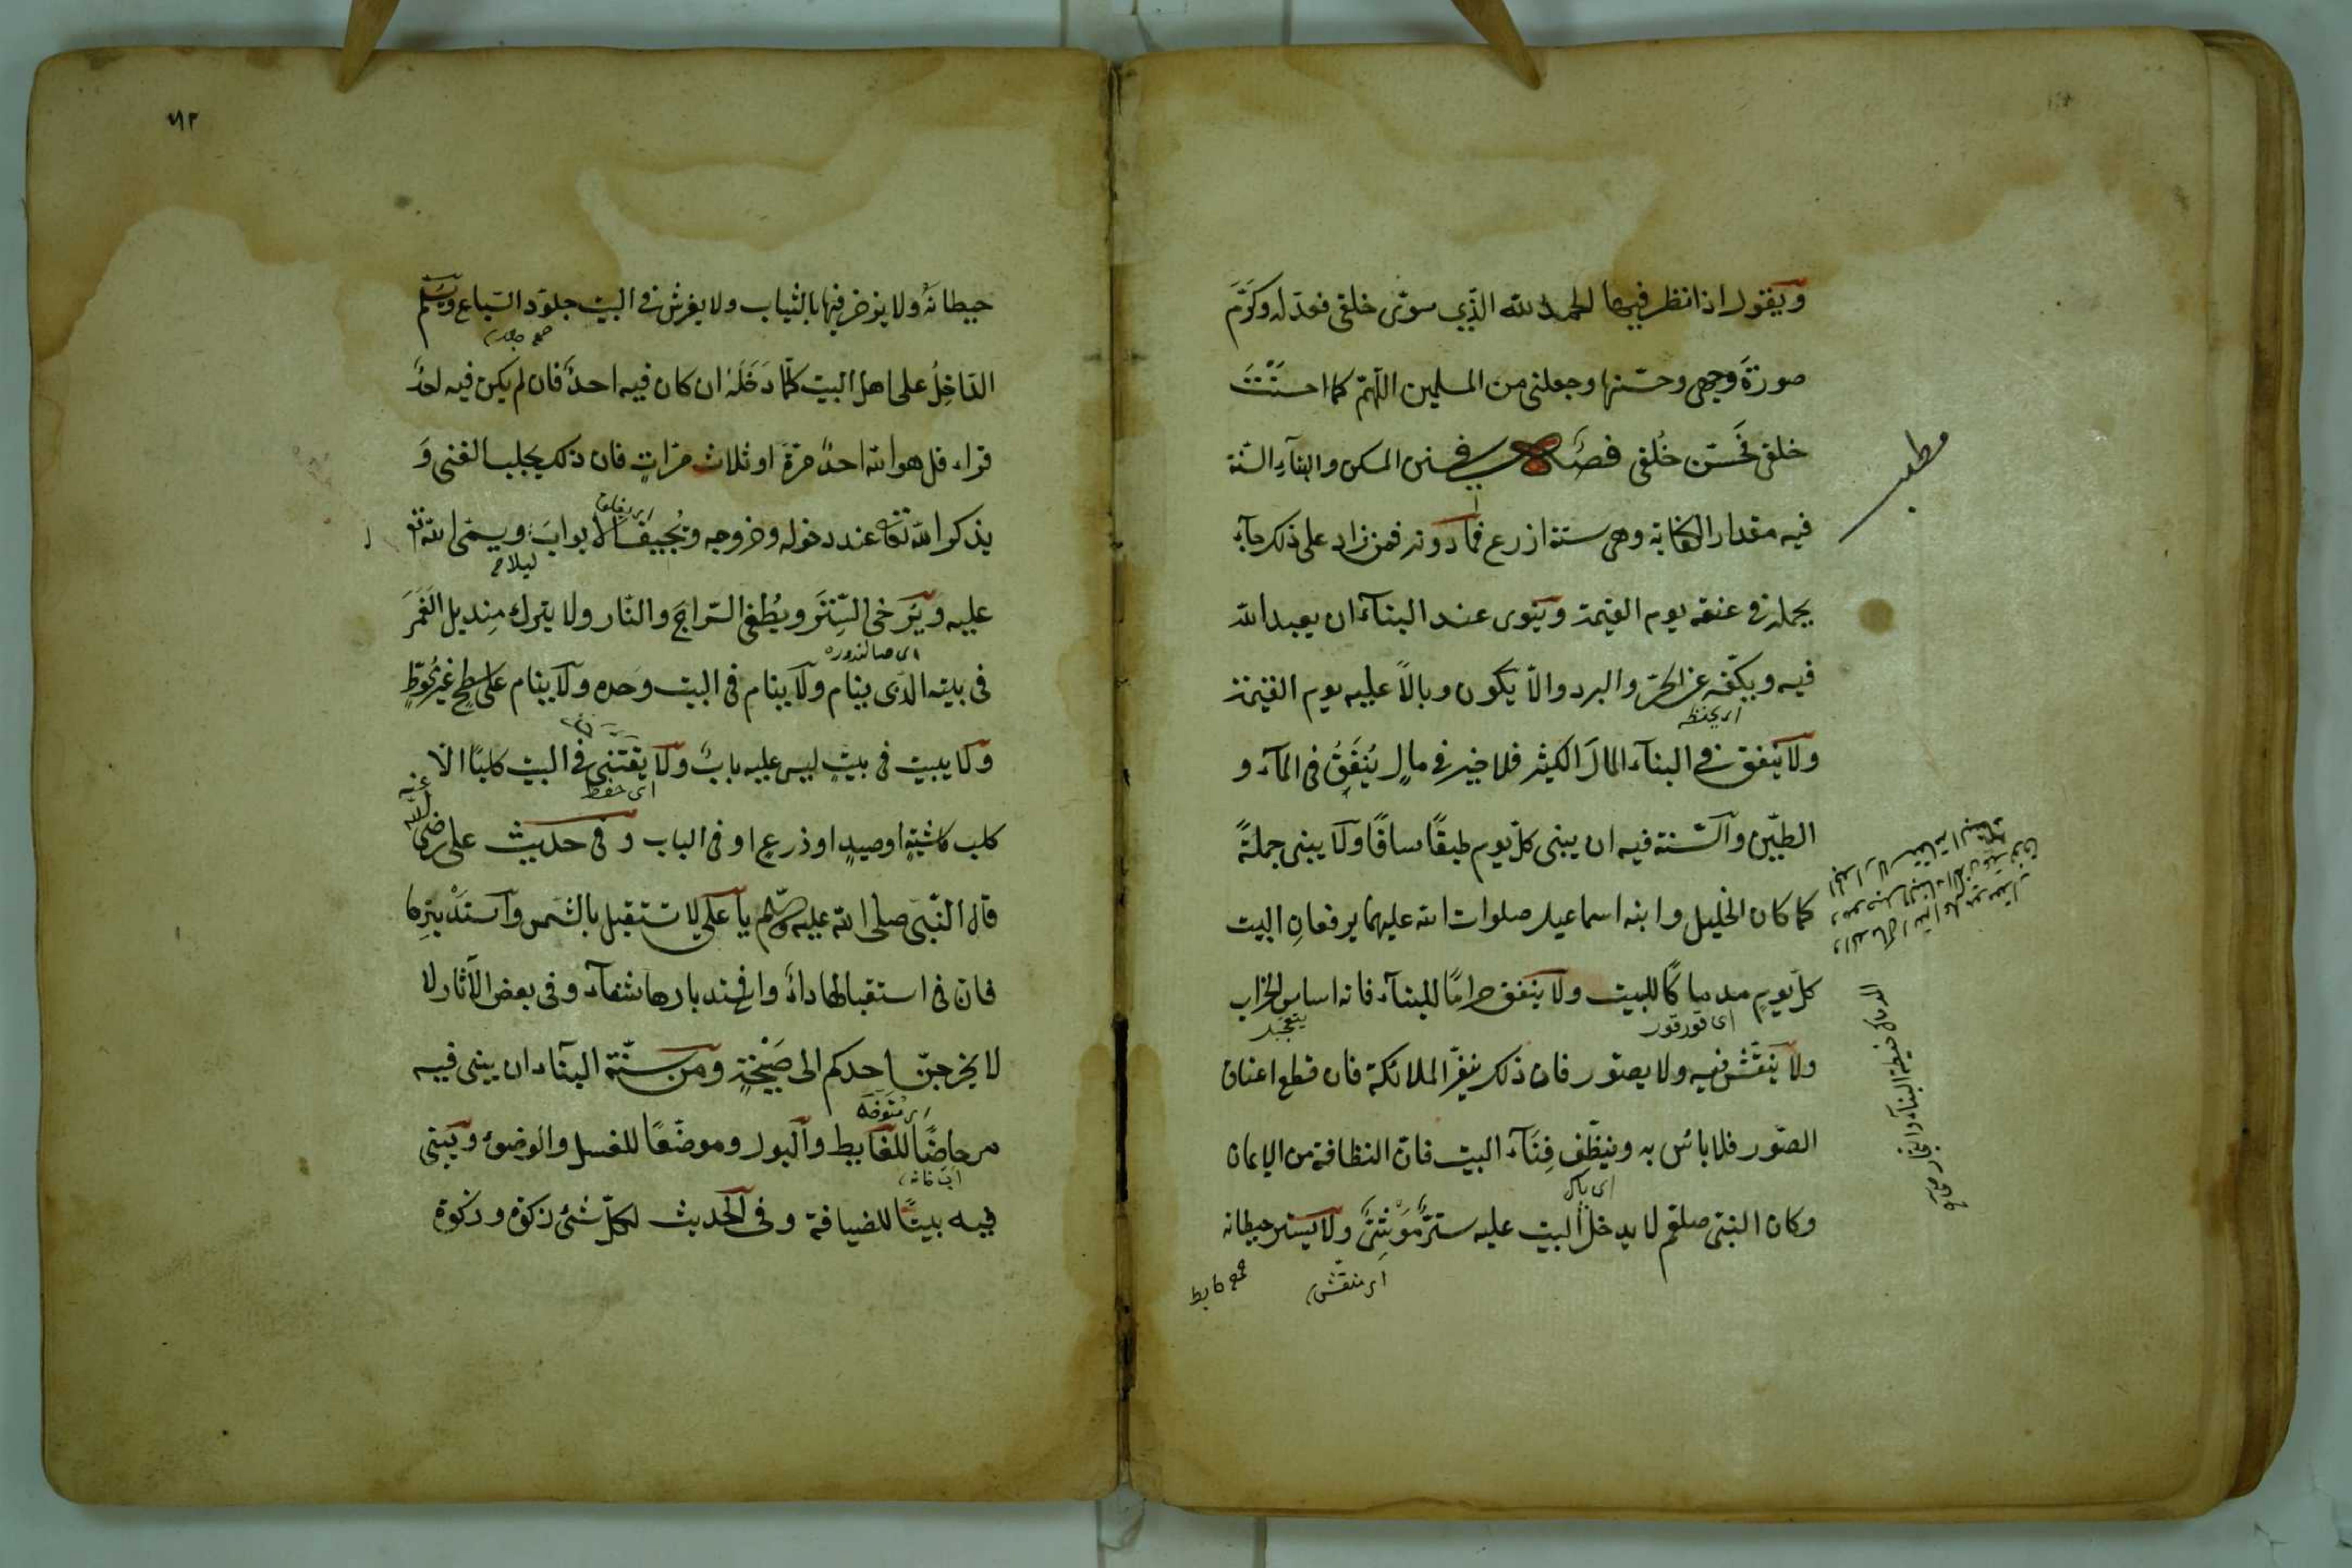 ويقول اذا نظر فيها الحمد لله الذي سوّى خلقى فعدّله وكرّم
صورة وجهى وحسّنها وجعلنى من المسلمين اللهمّ كما احسنت
خلقى فحسّن خُلقى فصل فى سنن المسكن والبناء السنّة
مطلب
فيه مقدار الكفاية وهى ستة اذرع فما دونه فمن زاد على ذلك جاء
يحمله فى عنقه يوم القيمة وينوى عند البناء ان يعبد الله
فيه ويكنّه عن الحرّ والبرد والّا يكون وبالاً عليه يوم القيمة
اى يحفظه
ولا ينفق فى البناء المال الكثير فلا خير فى مالٍ يُنفَقُ فى الماء و
الطّين والسّنة فيه ان يبنى كلّ يوم طبقًا سافًا ولا يبنى جملةً
كما كان الخليل وابنه اسماعيل صلوات الله عليهما يرفعان البيت
كلّ يومٍ مدماكًا للبيت ولا ينفق حرامًا للبناء فانه اساس الخراب
ولا ينقّش فيه ولا يصوّر فان ذلك ينفّر الملائكة فان قطع اعناق
الصّور فلا باس به وينظّف فِنَاء البيت فانّ النظافة من الايمان
اى پاك
وكان النبىّ صلعم لا يدخل البيت عليه سترٌ مُوَشّىً ولا يستر حيطانه
اى منقّش
جمع حايط
٧١٢
حيطانه ولا يزخرفها بالثياب ولا يفرش فى البيت جلود السّباع ويسلّم
جمع جلد
الدّاخِلُ على اهل البيت كلّما دَخَلَهُ ان كان فيه احدٌ فان لم يكن فيه احدٌ
قراء قل هو الله احدٌ مرّةً او ثلاث مرّاتٍ فان ذلك يجلب الغنى وَ
يذكر الله تعالى عند دخوله وخروجه ويُجيف الابوابَ ويسمّى الله تع
ليلا
عليه ويُرخى السِّترَ ويُطفى السّراجَ والنّار ولا يترك مِنديل الغَمَرَ
فى بيته الّذى ينام ولا ينام فى البيت وحده ولا ينام على سطحٍ غيرِ مُحوّطٍ
ولا يبيت فى بيتٍ ليس عليه بابٌ ولا يقتنى فى البيت كلبًا الّا
اى حفظ
كلب ماشيةٍ او صيدٍ او ذرعٍ او فى الباب وفى حديث على رضى الله عنه
قال النّبى صلى الله عليه وسلّم يا على لا تستقبل بالشّمس واستدْبِرها
فانّ فى استقبالها داءً وافى استدبارها شفاء وفى بعض الآثار لا
لا يخرجنّ احدكم الى صَيْحةٍ ومن سنّة البناء ان يبنى فيه
مرحاضًا للغايط والبول وموضعًا للغسل والوضوء ويبنى
فيه بيتًا للضيافة وفى الحديث لكلّ شئ زكوة وزكوة